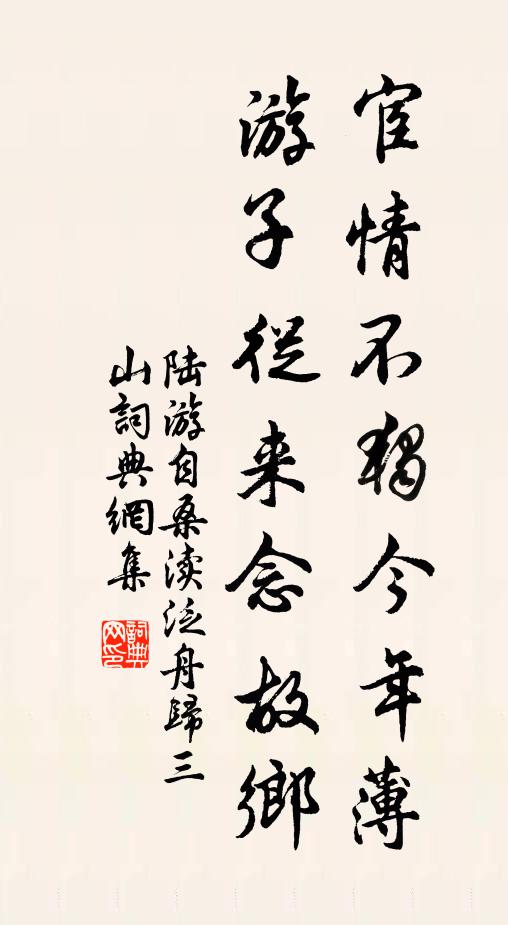 宦情不獨今年薄
游子從来念故鄉
陆游自桑渎泛舟歸三
山詞典網集
詞典网印